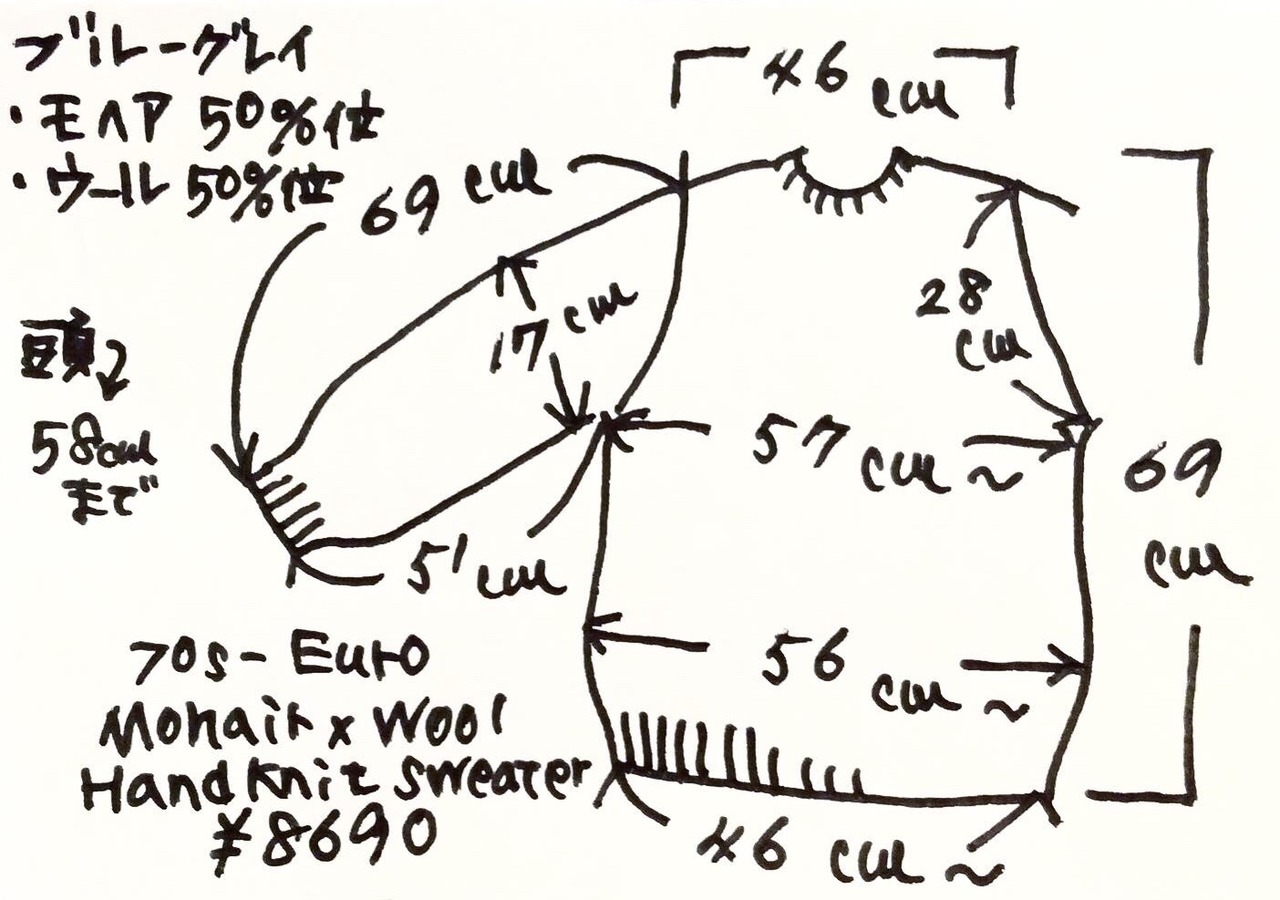 ブルーグレイ
・モヘア 50%位
・ウール 50%位
46 cm
69 cm
17 cm
28 cm
頭
58cm
まで
57 cm ~
69 cm
51 cm
56 cm ~
70s- Euro
Mohair x Wool
Hand Knit Sweater
¥8690
46 cm ~